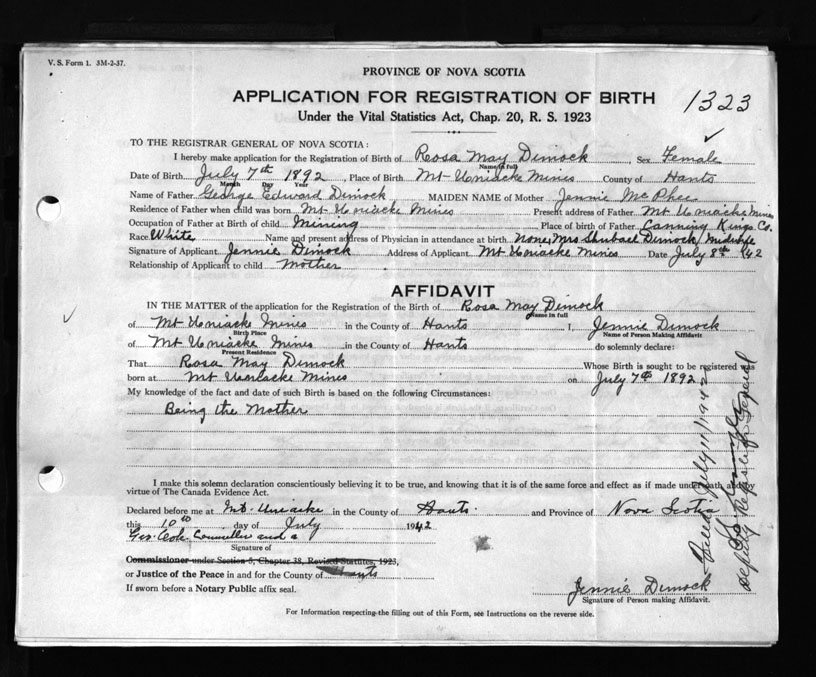 V. S. Form 1. 3M-2-37.
PROVINCE OF NOVA SCOTIA
APPLICATION FOR REGISTRATION OF BIRTH
1323
Under the Vital Statistics Act, Chap. 20, R. S. 1923
TO THE REGISTRAR GENERAL OF NOVA SCOTIA:
I hereby make application for the Registration of Birth of Rosa May Dimock, Sex Female
Name in full
Date of Birth July 7th 1892, Place of Birth Mt Uniacke Mines County of Hants
Month Day Year
Name of Father George Edward Dimock MAIDEN NAME of Mother Jennie McPhee
Residence of Father when child was born Mt Uniacke Mines Present address of Father Mt Uniacke Mines
Occupation of Father at Birth of child Mining Place of birth of Father Canning Kings Co.
Race White Name and present address of Physician in attendance at birth None, Mrs Shubael Dimock, Midwife
Signature of Applicant Jennie Dimock Address of Applicant Mt Uniacke Mines Date July 8th 1942
Relationship of Applicant to child Mother
AFFIDAVIT
IN THE MATTER of the application for the Registration of the Birth of Rosa May Dimock
Name in full
of Mt Uniacke Mines in the County of Hants I, Jennie Dimock
Birth Place Name of Person Making Affidavit
of Mt Uniacke Mines in the County of Hants do solemnly declare:
Present Residence
That Rosa May Dimock Whose Birth is sought to be registered was
born at Mt Uniacke Mines on July 7th 1892
My knowledge of the fact and date of such Birth is based on the following Circumstances:
Being the Mother
I make this solemn declaration conscientiously believing it to be true, and knowing that it is of the same force and effect as if made under oath and by
virtue of The Canada Evidence Act.
Declared before me at Mt. Uniacke in the County of Hants. and Province of Nova Scotia
this 10th day of July 1942
Geo. Cole Councillor and a
Signature of
Commissioner under Section 5, Chapter 38, Revised Statutes, 1923,
or Justice of the Peace in and for the County of Hants
If sworn before a Notary Public affix seal.
Jennie Dimock
Signature of Person making Affidavit.
For Information respecting the filling out of this Form, see Instructions on the reverse side.
July 11 1942
Deputy Registrar General